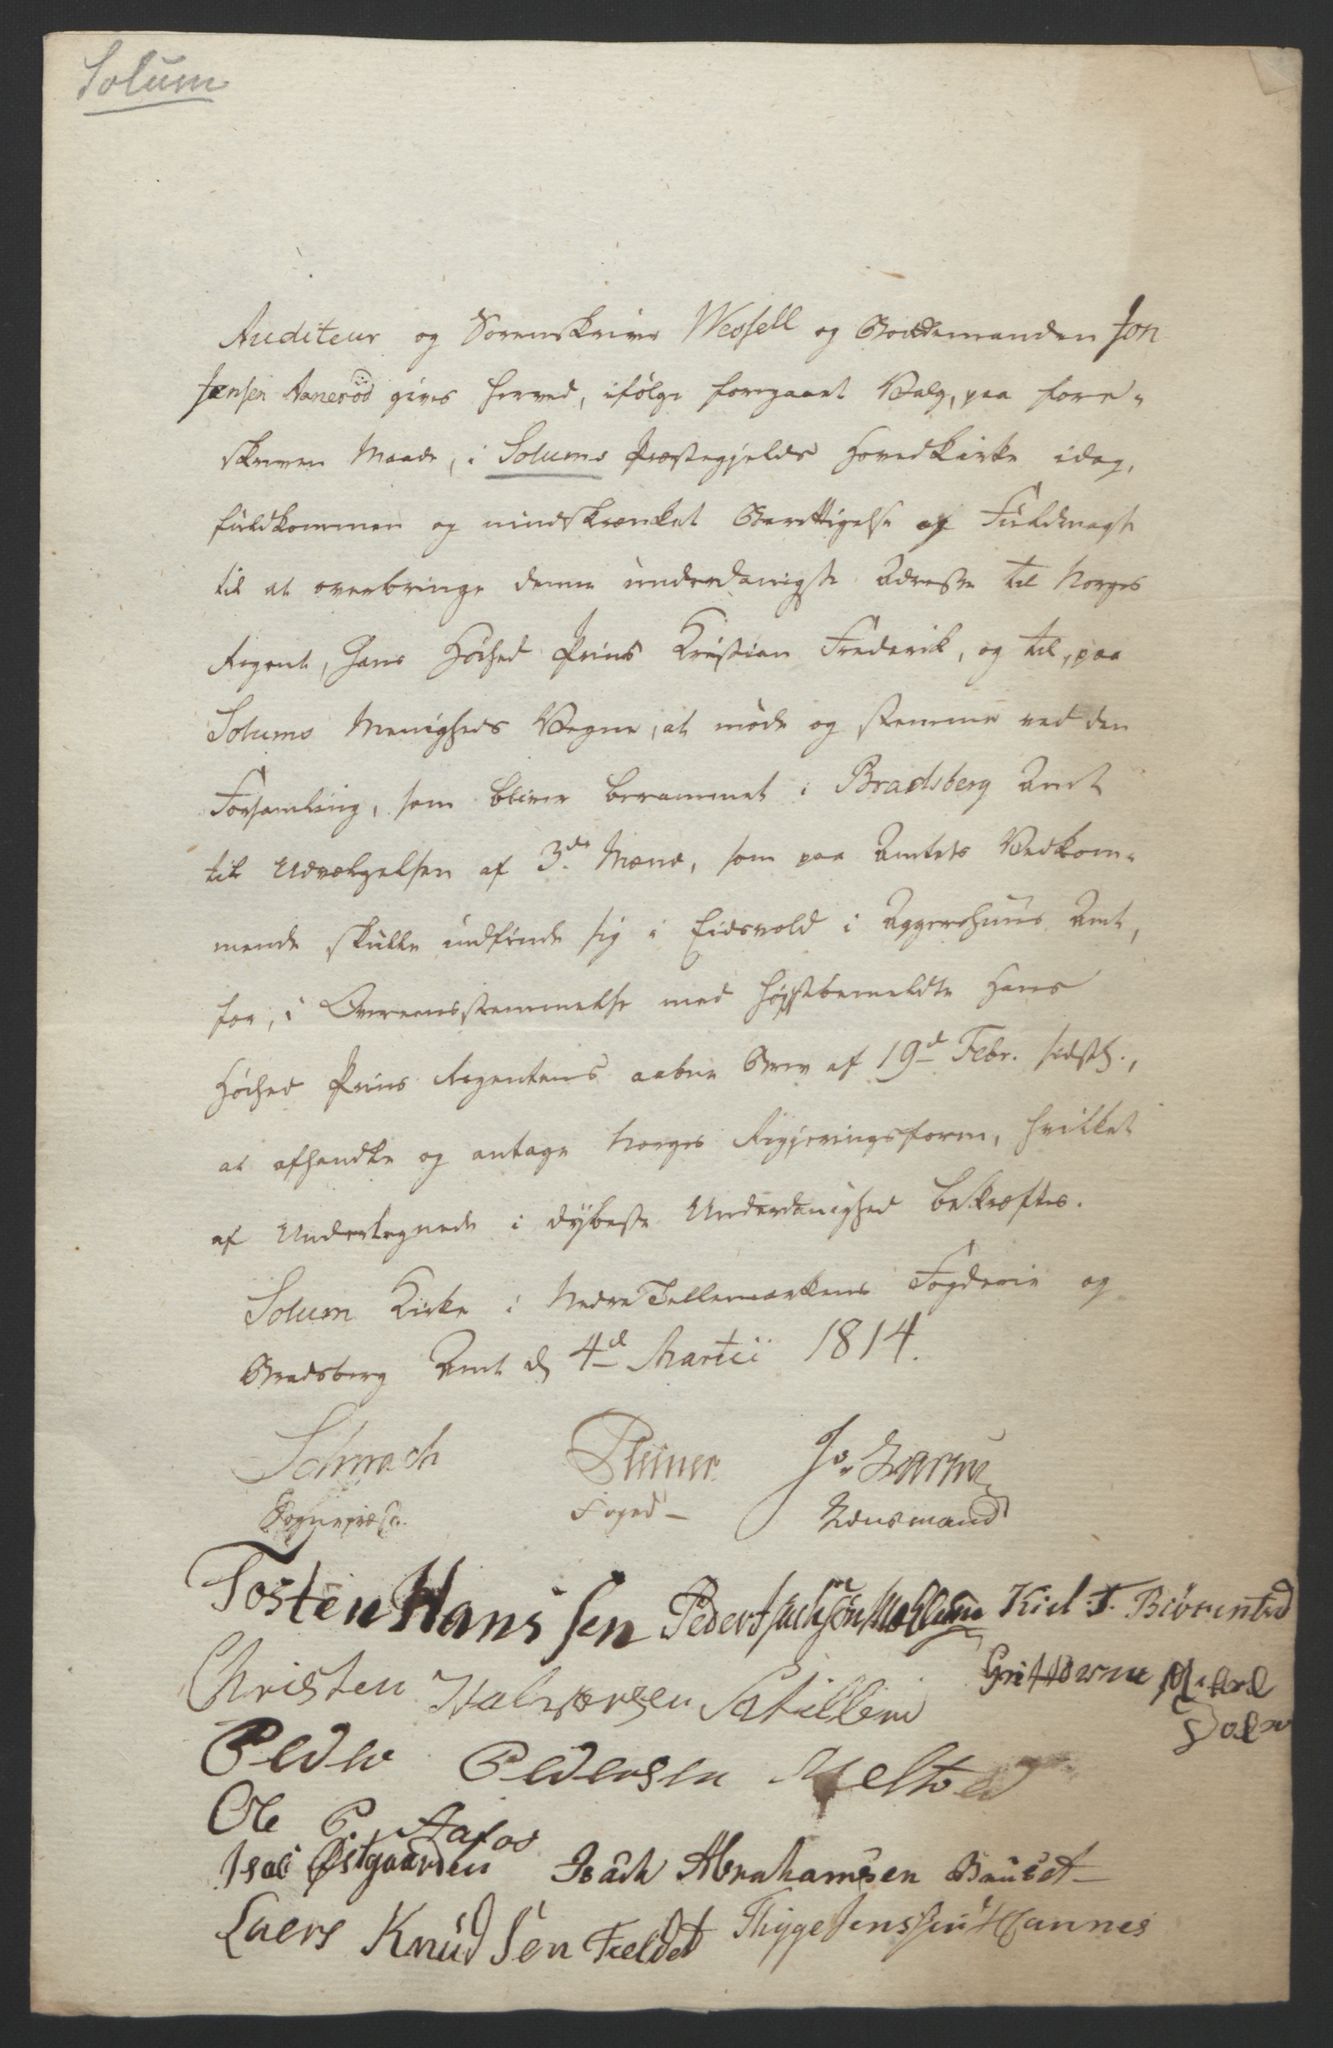 Solum
Auditeur og Sorenskriver Wessell og Bondemanden Jon
Jensen Aanerød gives herved, ifölge foregaaet Valg, paa fore-
skreven Maade, i Solums Præstegjelds Hovedkirke idag,
fuldkommen og uindskrænket Berettigelse og Fuldmagt
til at overbringe denne underdanigste Adresse til Norges
Regent, Hans Höihed Prins Kristian Frederik, og til, paa
Solums Menigheds Vegne, at møde og stemme ved den
Forsamling, som bliver berammet i Bradsberg Amt
til Udvælgelsen af 3de Mænd, som paa Amtets Vedkom-
mende skulle indfinde sig i Eidsvold i Aggershuus Amt,
for, i Overeensstemmelse med høistbemeldte Hans
Höihed Prins Regentens aabne Brev af 19d Febr. sidstl.,
at afhandle og antage Norges Regjeringsform, hvilket
af Undertegnede i dybeste Underdanighed bekræftes.
Solum Kirke i Nedre Tellemarkens Fogderie og
Bradsberg Amt d 4d Martii 1814.
Schwach
Sognepræst. Foged Lensmand
Tosten Hanssen Peder Isachsøn Kiel. T.
Christen Halvorsen
Peder Pedersen
Ole P. Aafos
Isak Østgaarden Isach Abrahamsen
Laers Knudsen Fieldet Thyge Jenssen